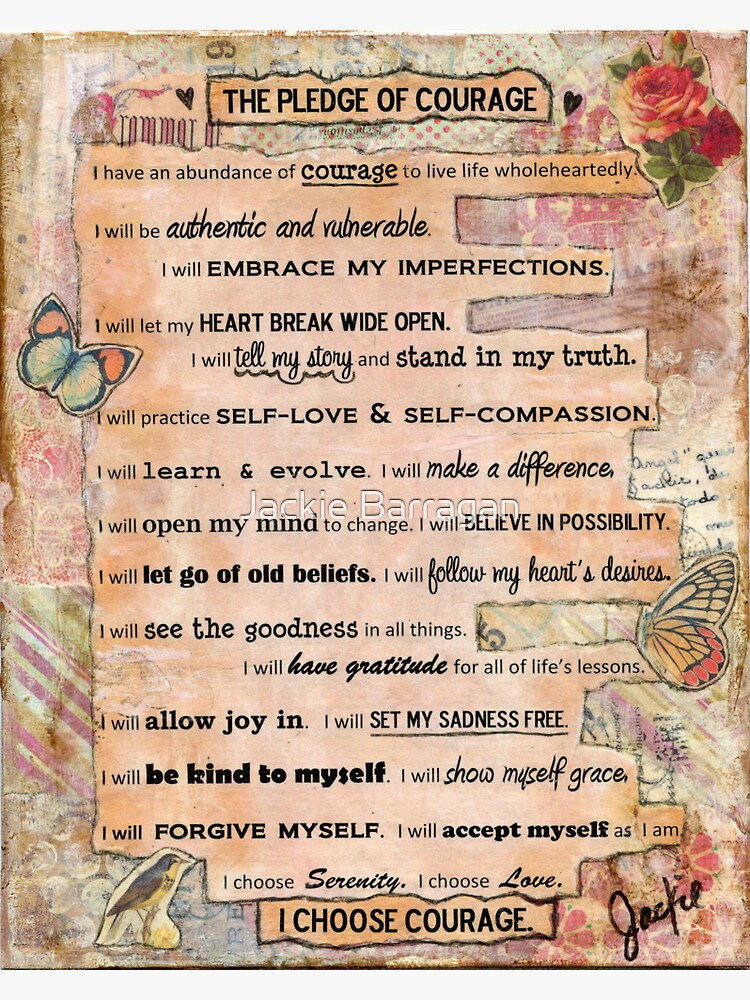 THE PLEDGE OF COURAGE
I have an abundance of courage to live life wholeheartedly.
I will be authentic and vulnerable.
I will EMBRACE MY IMPERFECTIONS.
I will let my HEART BREAK WIDE OPEN.
I will tell my story and stand in my truth.
I will practice SELF-LOVE & SELF-COMPASSION.
I will learn & evolve. I will make a difference.
I will open my mind to change. I will BELIEVE IN POSSIBILITY.
Jackie Barragan
I will let go of old beliefs. I will follow my heart's desires.
I will see the goodness in all things.
5
I will have gratitude for all of life's lessons.
I will allow joy in. I will SET MY SADNESS FREE.
I will be kind to myself. I will show myself grace.
I will FORGIVE MYSELF. I will accept myself as I am.
I choose Serenity. I choose Love.
I CHOOSE COURAGE.
Jackie